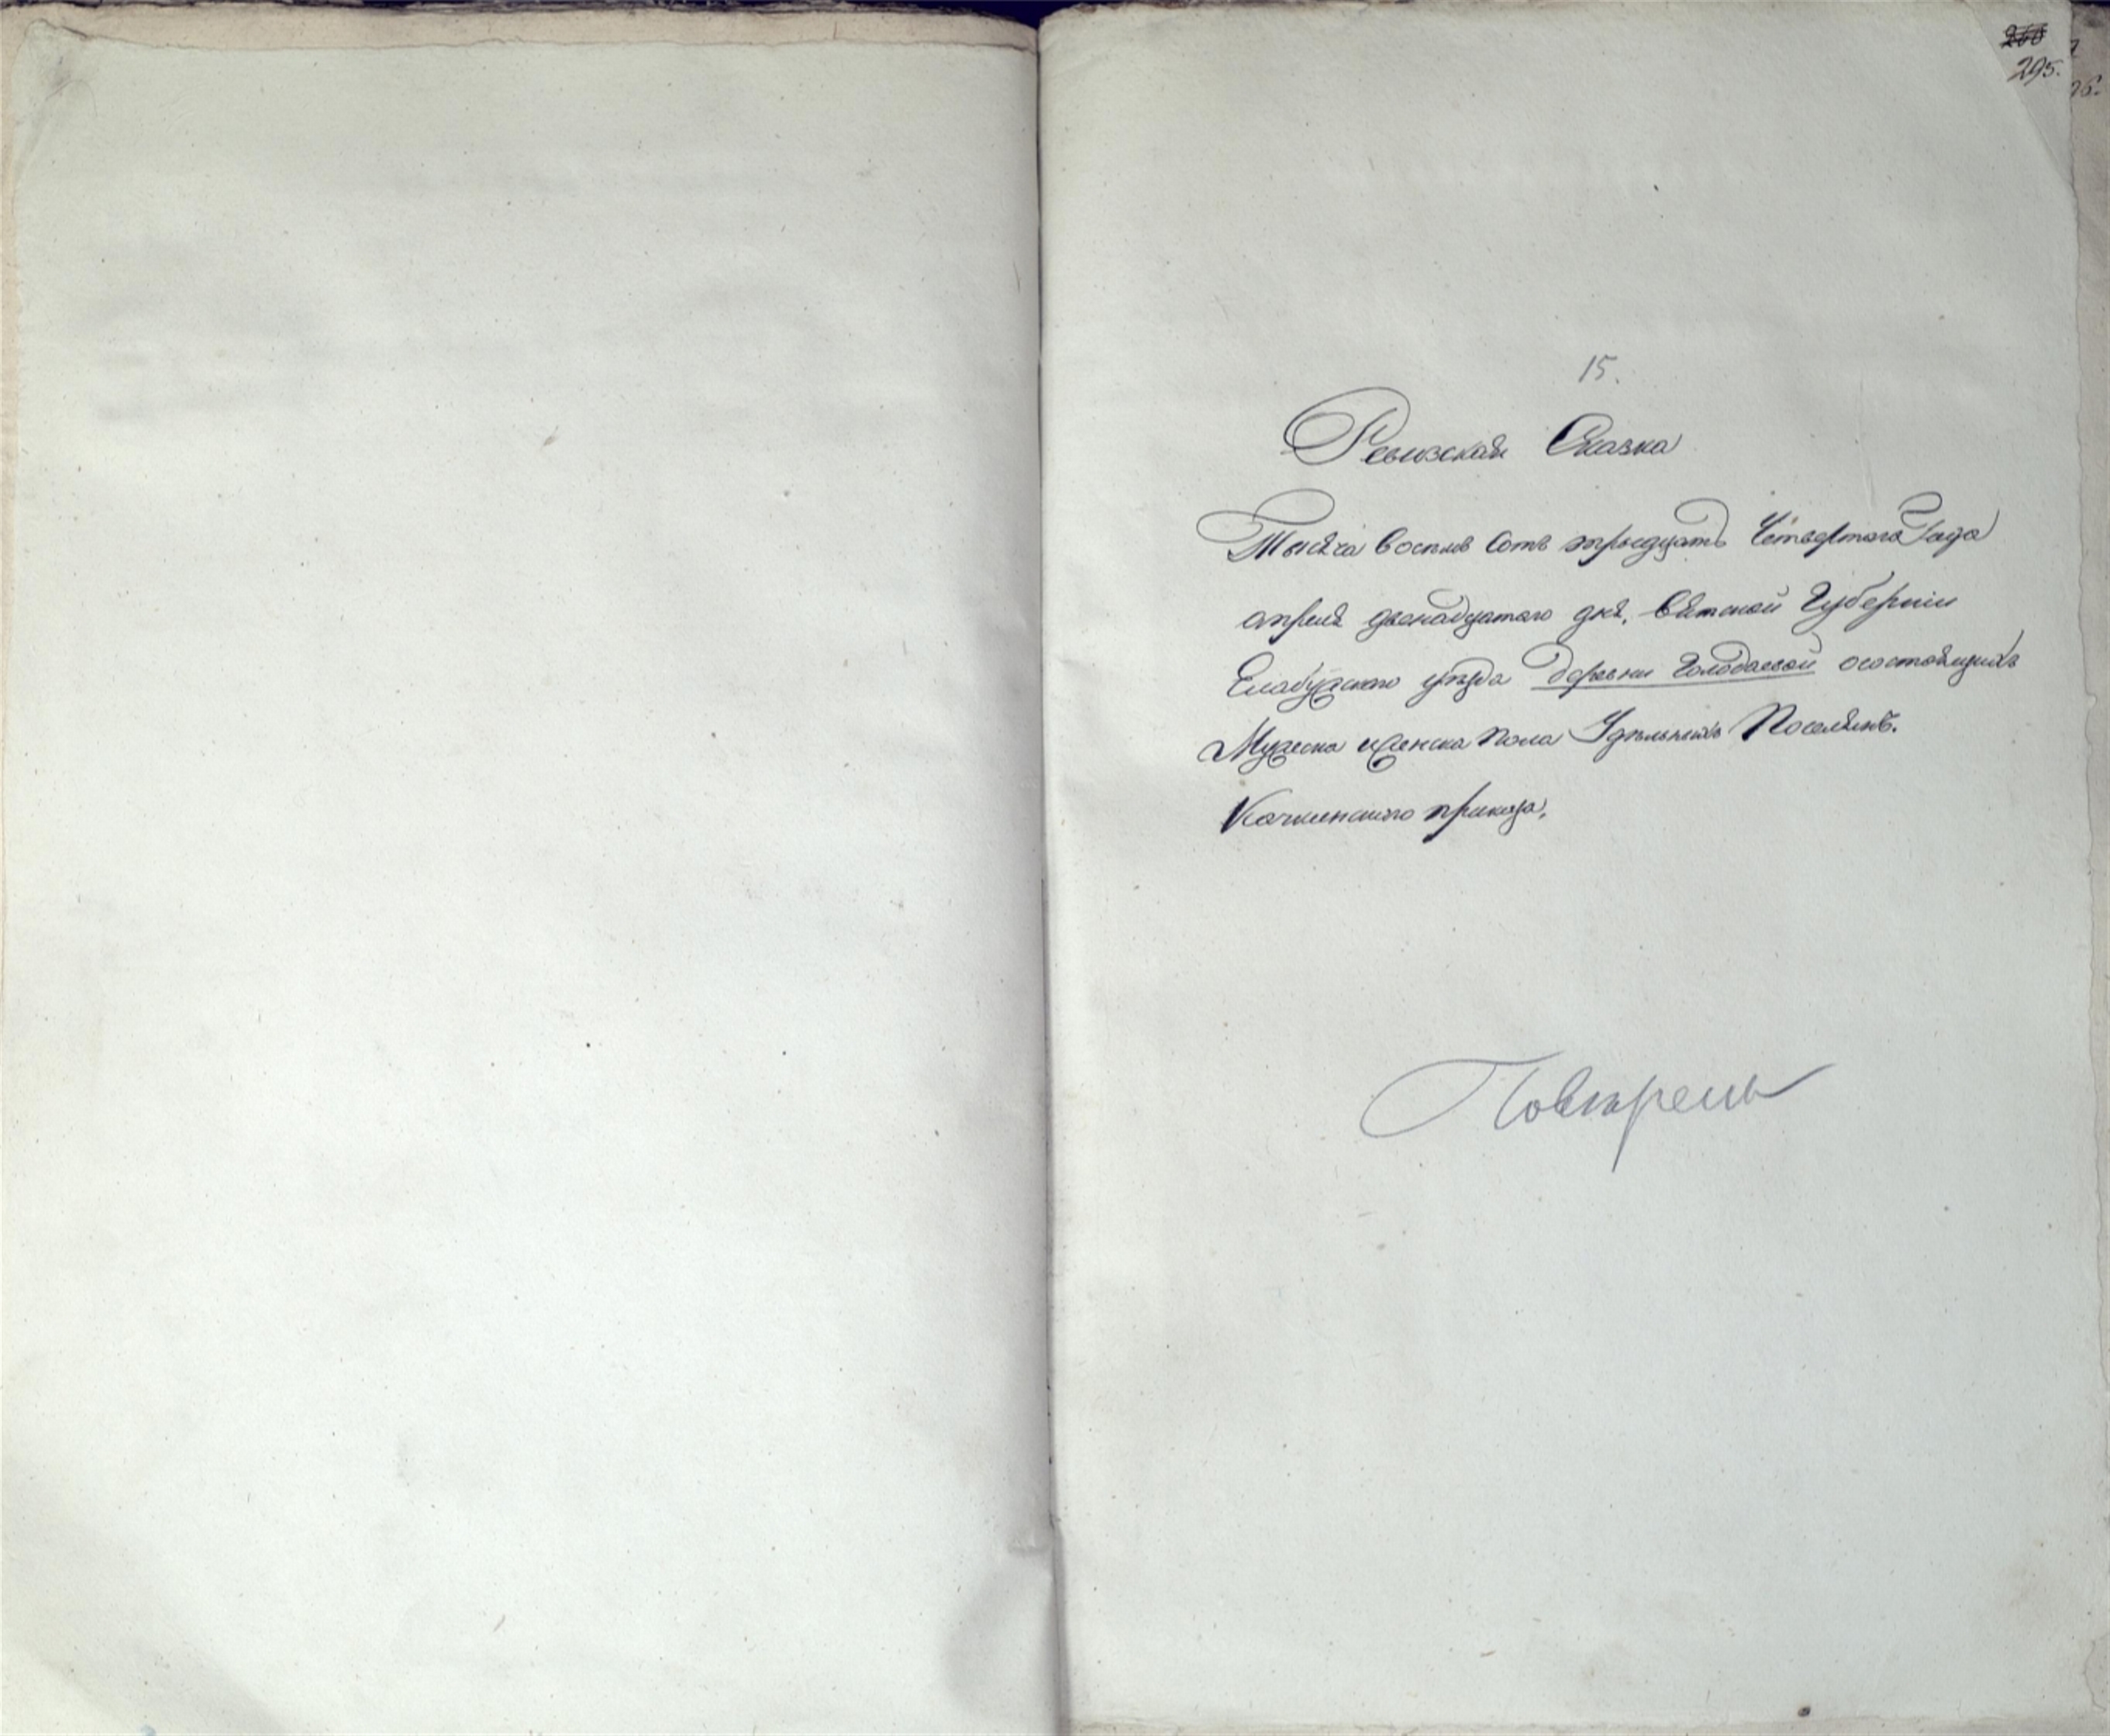 260
295.
15.
Ревизская Сказка
Тысяча восемь Сотъ тридцать Четвертого Года
апреля двенадцатого дня, Вятской Губернии
Елабугского уезда деревни Голодаевой о состоящихъ
Мужеска и Женска пола Удельныхъ Поселянъ.
Качкинского приказа,